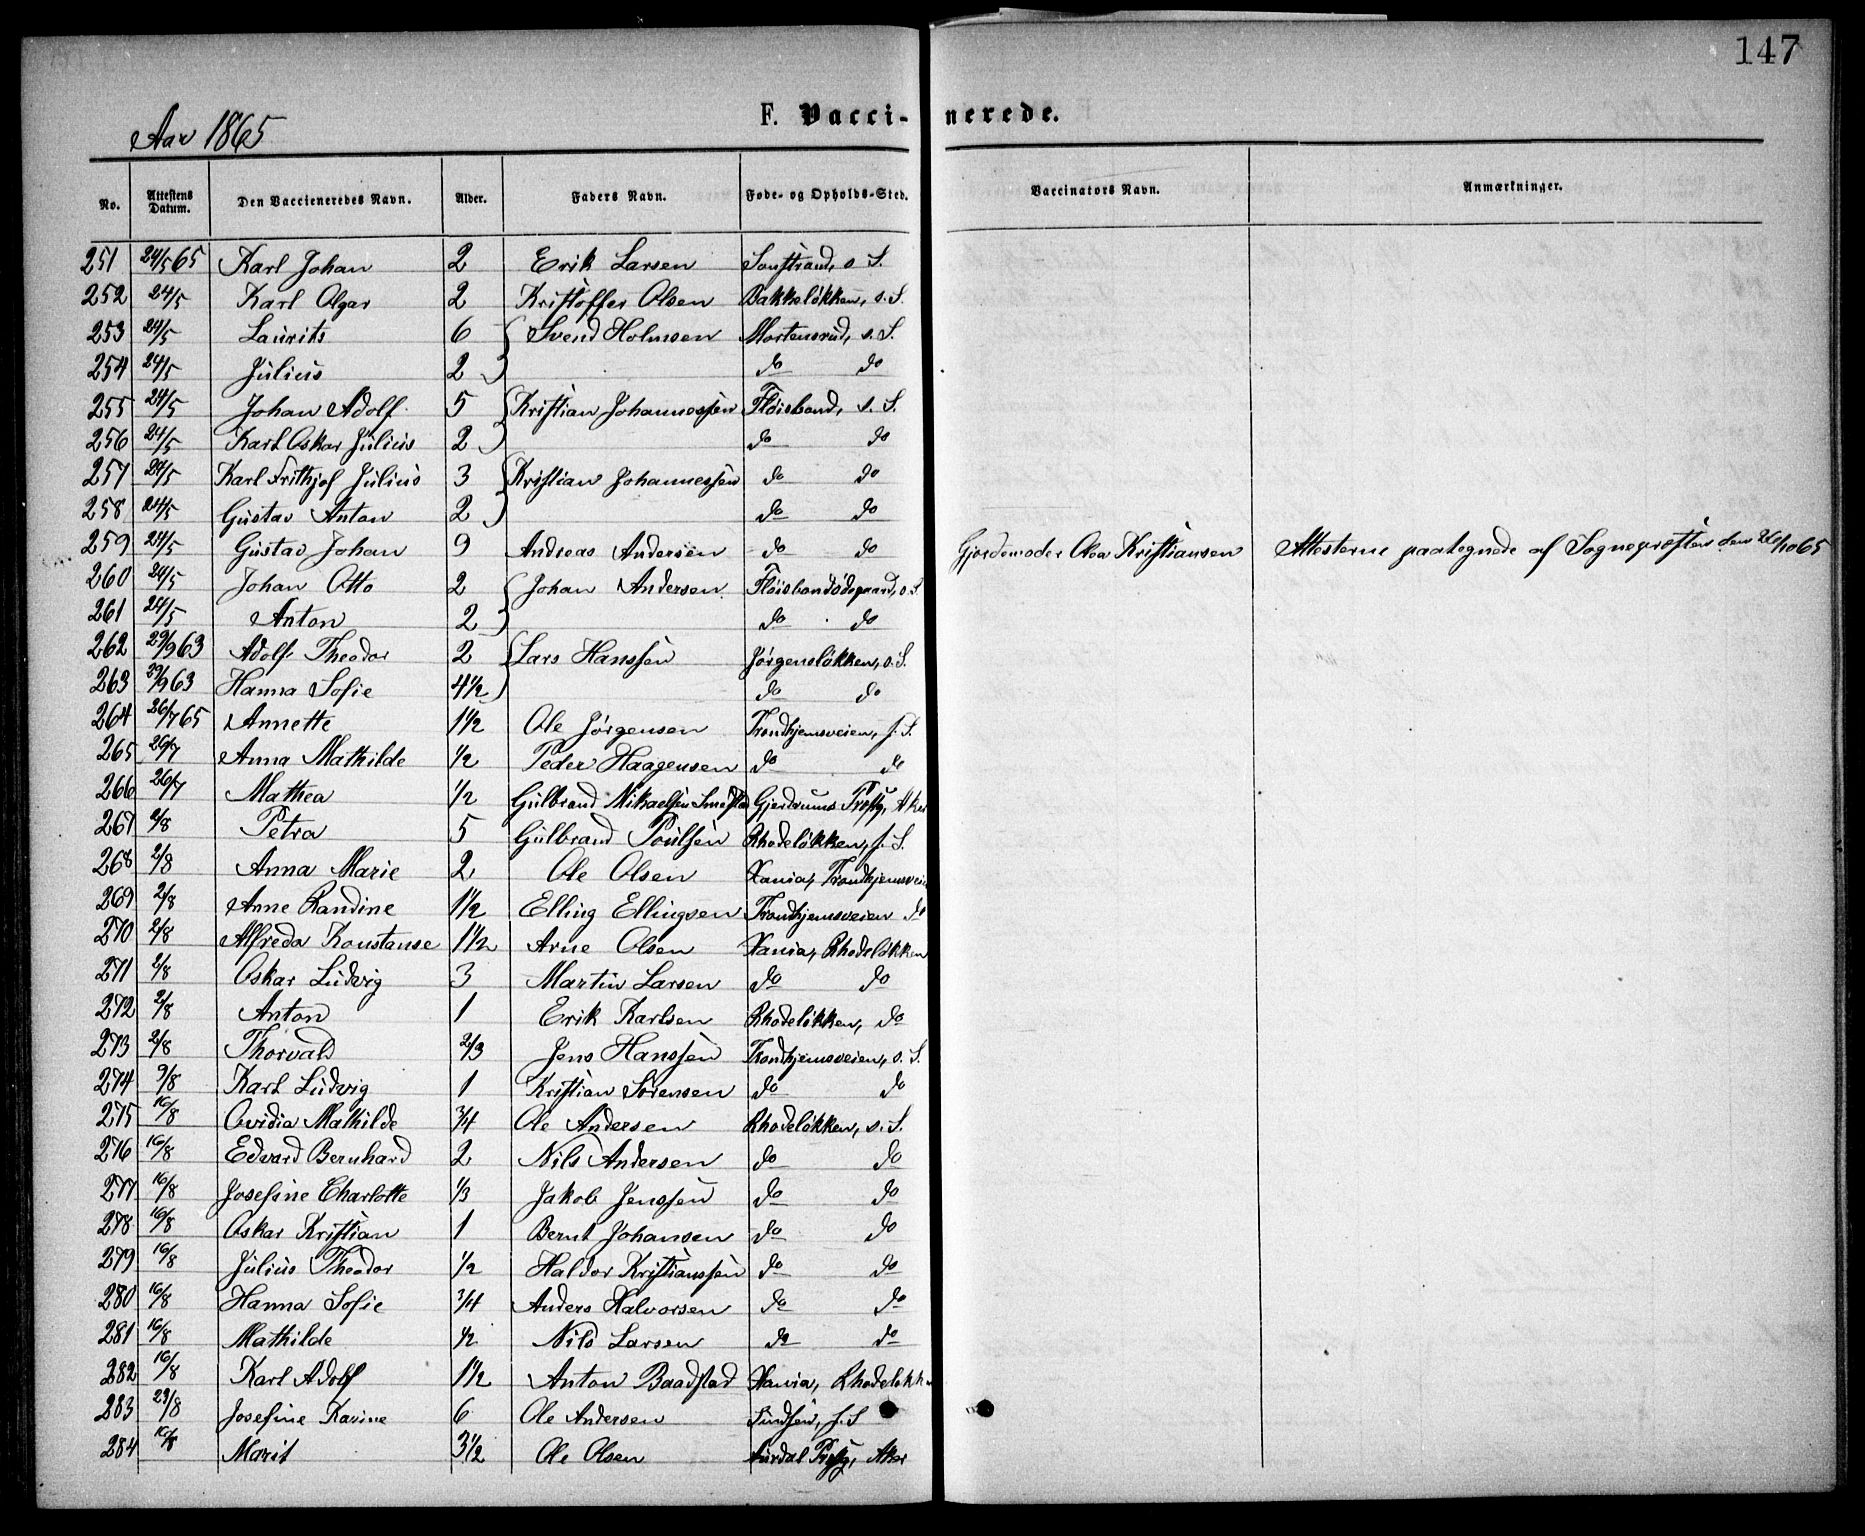 147
Aar 1865
F. Vaccinerede.
No. Attestens Datum. Den Vaccieneredes Navn. Alder. Faders Navn. Føde- og Opholds-Sted. Vaccinators Navn. Anmærkninger.
251 24/5 65 Karl Johan 2 Erik Larsen s. S.
252 24/5 Karl Olgar 2 Kristoffer Olsen Bakkeløkken, s. S.
253 24/5 Laurits 6 Svend Holmsen Mortensrud, s. S.
254 24/5 Julius 2 do do
255 24/5 Johan Adolf 5 Kristian Johannessen Fløisbond, s. S.
256 24/5 Karl Oskar Julius 2 do do
257 24/5 Karl Frithjof Julius 3 Kristian Johannessen do do
258 24/5 Gustav Anton 2 do do
259 24/5 Gustav Johan 9 Andreas Andersen do do Gjordemoder Olea Kristiansen Attesterne paategnede af Sognepræsten den 26/10 65
260 24/5 Johan Otto 2 Johan Andersen Fløisbondødegaard, s. S.
261 24/5 Anton 2 do do
262 29/9 63 Adolf Theodor 2 Lars Hanssen Jørgensløkken, s. S.
263 29/9 63 Hanna Sofie 4 1/2 do do
264 26/7 65 Annette 1 1/2 Ole Jørgensen Trondhjemsveien, s. S.
265 26/7 Anna Mathilde 1/2 Peder Haagensen do do
266 26/7 Mathea 1/2 Gulbrand Mikaelsen Smestad Gjerdrums Præstg, Aker
267 2/8 Petra 5 Gulbrand Poulsen Rhodeløkken, s. S.
268 2/8 Anna Marie 2 Ole Olsen Xania, Trondhjemsvei
269 2/8 Anne Randine 1 1/2 Elling Ellingsen Trondhjemsveien do
270 2/8 Alfreda Konstanse 1 1/2 Arne Olsen Xania, Rhodeløkken
271 2/8 Oskar Ludvig 3 Martin Larsen do do
272 2/8 Anton 1 Erik Karlsen Rhodeløkken, do
273 2/8 Thorvald 2/3 Jens Hanssen Trondhjemsveien, s. S.
274 9/8 Karl Ludvig 1 Kristian Sørensen do do
275 16/8 Ovidia Mathilde 3/4 Ole Andersen Rhodeløkken, s. S.
276 16/8 Edvard Bernhard 2 Nils Andersen do do
277 16/8 Josefine Charlotte 1/3 Jakob Jenssen do do
278 16/8 Oskar Kristian 1 Bernt Johansen do do
279 16/8 Julius Theodor 1/2 Haldor Kristianssen do do
280 16/8 Hanna Sofie 3/4 Anders Halvorsen do do
281 16/8 Mathilde 1/2 Nils Larsen do do
282 16/8 Karl Adolf 1 1/2 Anton Baadstad Xania, Rhodeløkk
283 23/8 Josefine Karine 6 Ole Andersen s. S
284 16/8 Marit 3 1/2 Ole Olsen Aurdal Præstg, Aker